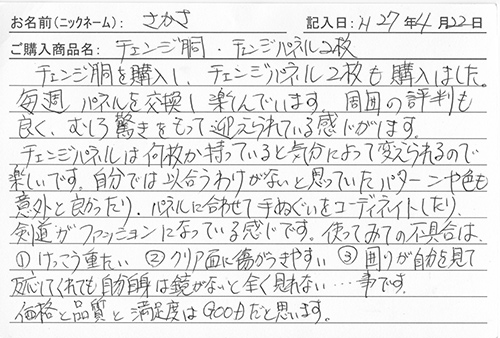 お名前(ニックネーム): さかさ 記入日: H27年4月22日
ご購入商品名: チェンジ胴・チェンジパネル2枚
チェンジ胴を購入し、チェンジパネル2枚も購入しました。
毎週パネルを交換し楽しんでいます。周囲の評判も
良く、むしろ驚きをもって迎えられている感じがします。
チェンジパネルは何枚か持っていると気分によって変えられるので
楽しいです。自分では似合うわけがないと思っていたパターンや色も
意外と良かったり、パネルに合わせて手ぬぐいをコーディネイトしたり、
剣道がファッションになっている感じです。使ってみての不具合は、
①けっこう重たい ②クリア面に傷がつきやすい ③囲りが自分を見て
反応してくれても自分自身は鏡がないと全く見れない…事です。
価格と品質と満足度はGOODだと思います。